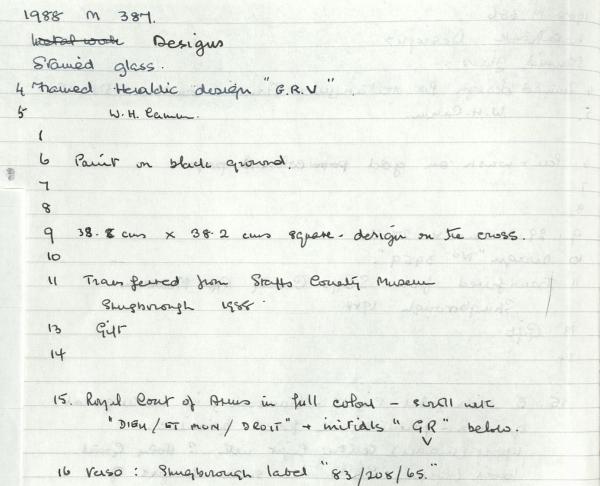 1988 M 387.
Metal work Designs
Stained glass.
4 Framed Heraldic design "G.R.V".
5 W.H. Camm.
1
6 Paint on black ground.
7
8
9 38.8 cms x 38.2 cms square - design on the cross.
10
11 Transferred from Staffs County Museum
Shugborough 1988.
13 Gift
14
15. Royal Coat of Arms in full colour - scroll with
"DIEU/ET MON/DROIT" + initials "GR" below.
V
16 Verso : Shugborough label "83/208/65."